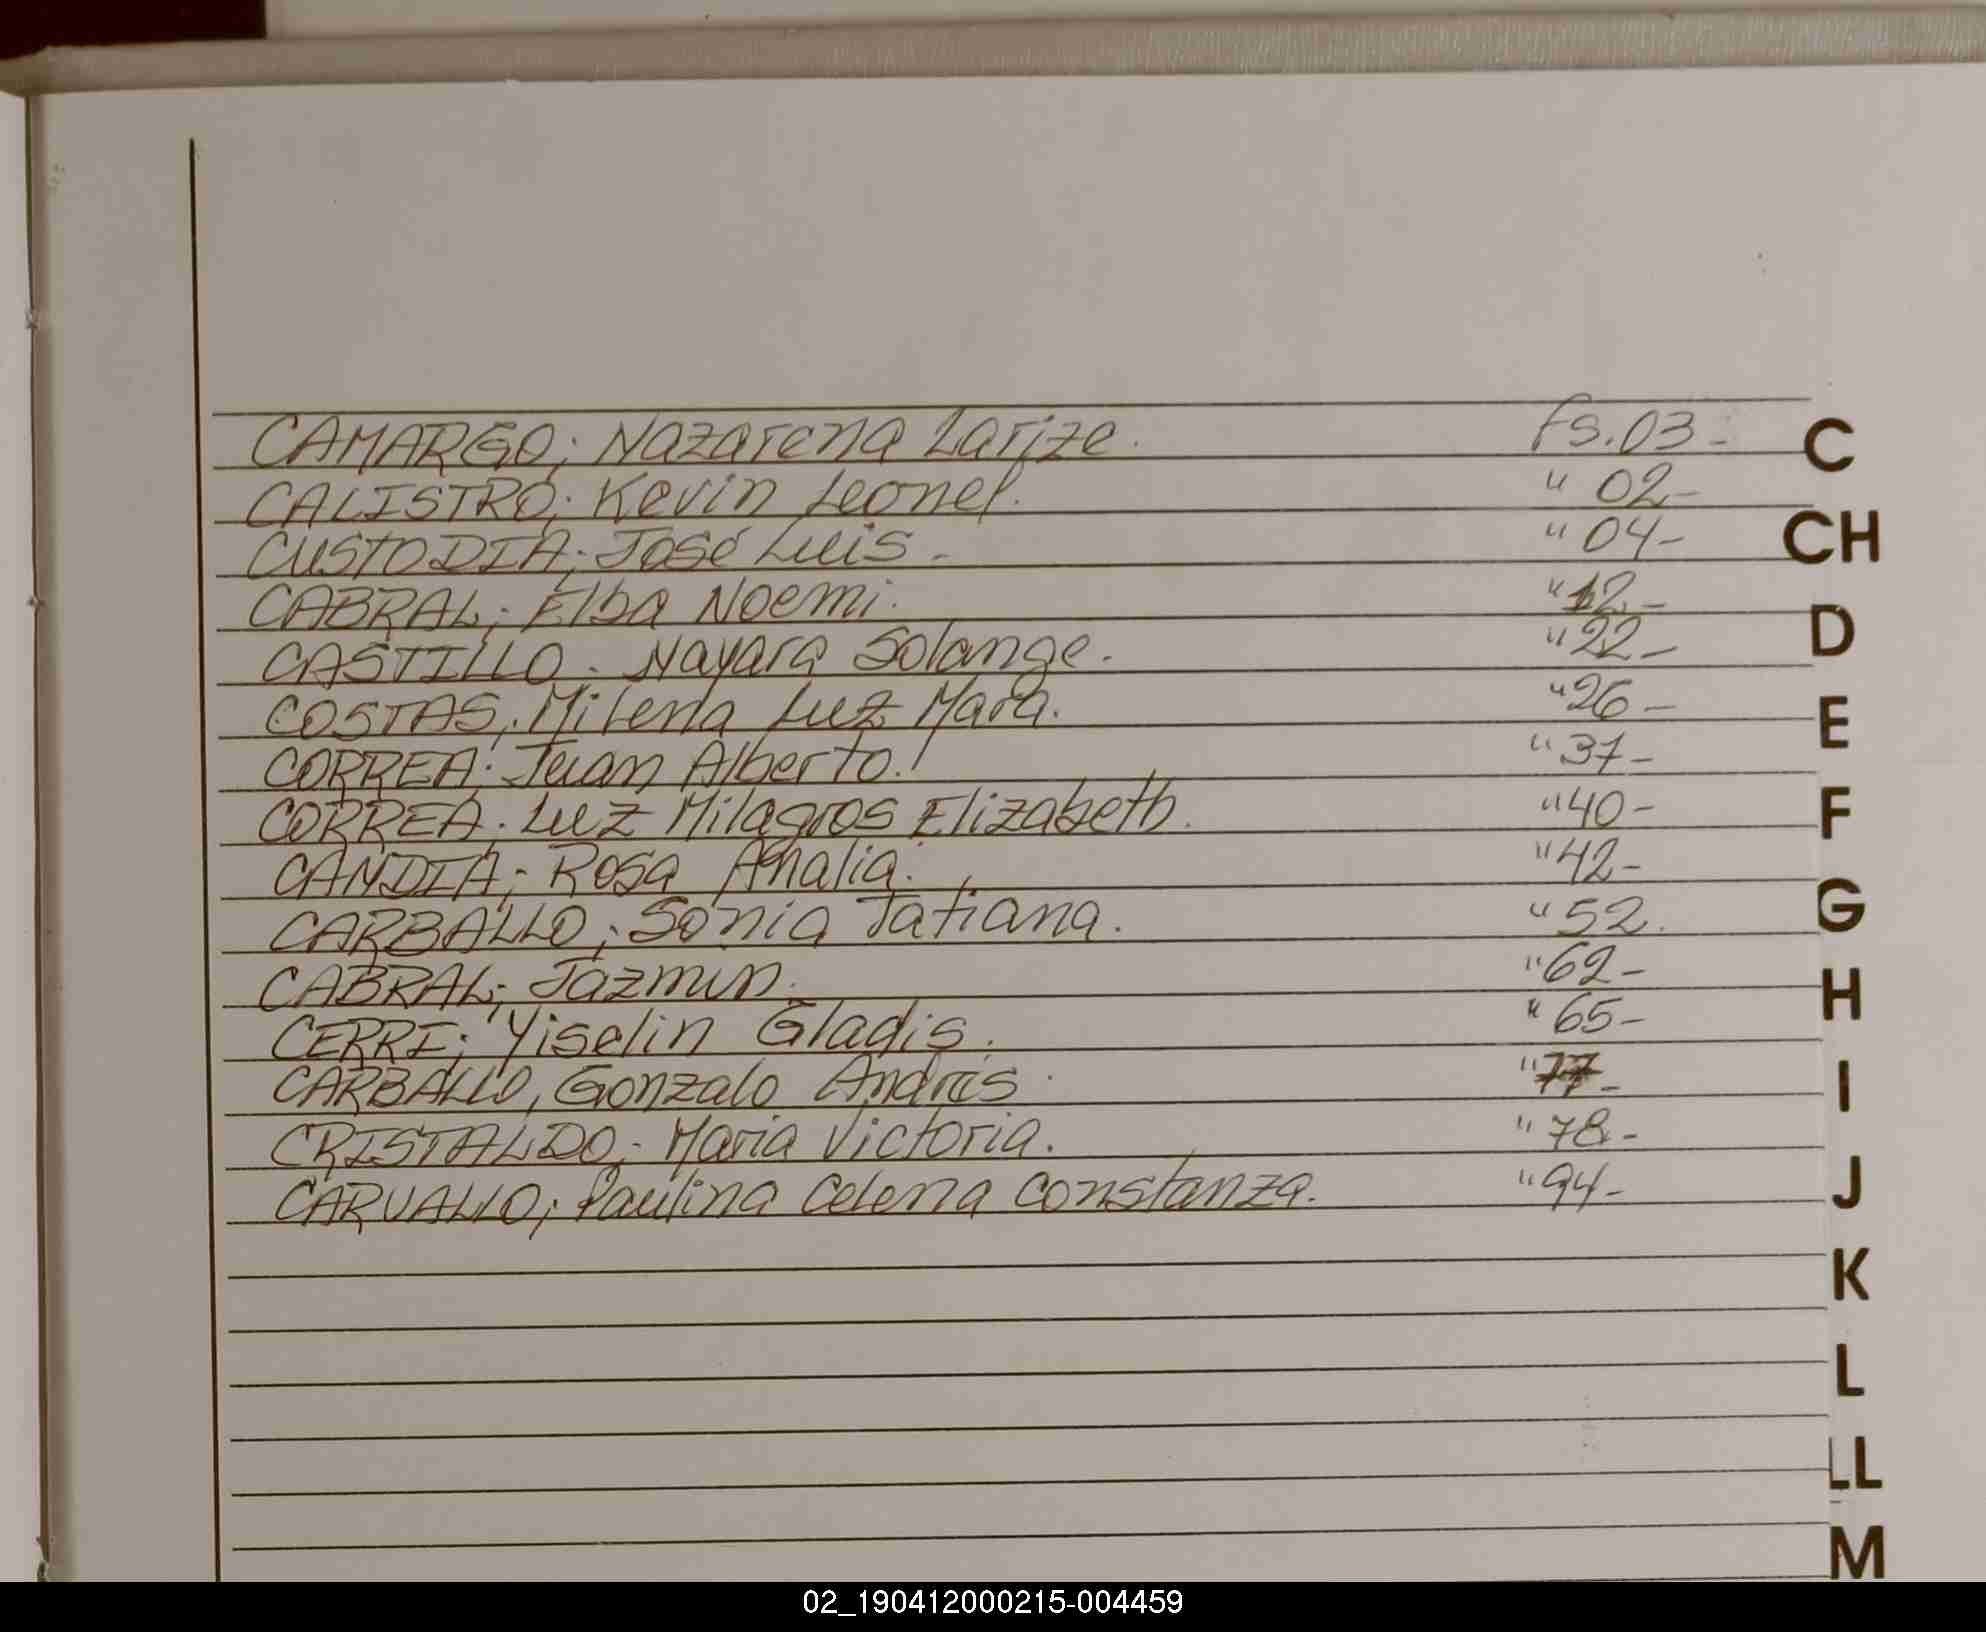 CAMARGO; Nazarena Larize. Fs. 03-
CALISTRO; Kevin Leonel. " 02-
CUSTODIA; José Luis - " 04-
CABRAL; Elba Noemi. " 12-
CASTILLO. Nayara Solange. " 22-
COSTAS; Milena Luz Mara. " 26-
CORREA. Juan Alberto. " 37-
CORREA. Luz Milagros Elizabeth. " 40-
CANDIA; Rosa Analia. " 42-
CARBALLO; Sonia Tatiana. " 52.
CABRAL; Jazmin. " 62-
CERRI; Yiselin Gladis. " 65-
CARBALLO, Gonzalo Andres. " 77-
CRISTALDO; Maria Victoria. " 78-
CARVALLO; Paulina Celena Constanza. " 94-
C
CH
D
E
F
G
H
I
J
K
L
LL
M
02_190412000215-004459